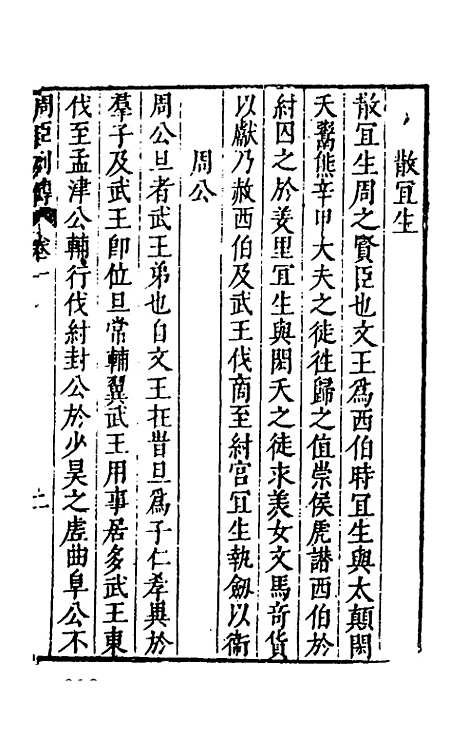 散宜生
散宜生周之賢臣也文王爲西伯時宜生與太顛閎
夭鬻熊辛甲大夫之徒徃歸之值崇侯虎譖西伯於
紂囚之於羑里宜生與閎夭之徒求美女文馬奇貨
以獻乃赦西伯及武王伐商至紂宮宜生執劔以衛
周公
周公旦者武王弟也自文王在昔旦爲子仁孝異於
羣子及武王卽位旦常輔翼武王用事居多武王東
伐至孟津公輔行伐紂封公於少昊之虗曲阜公不
周臣列傳 卷一